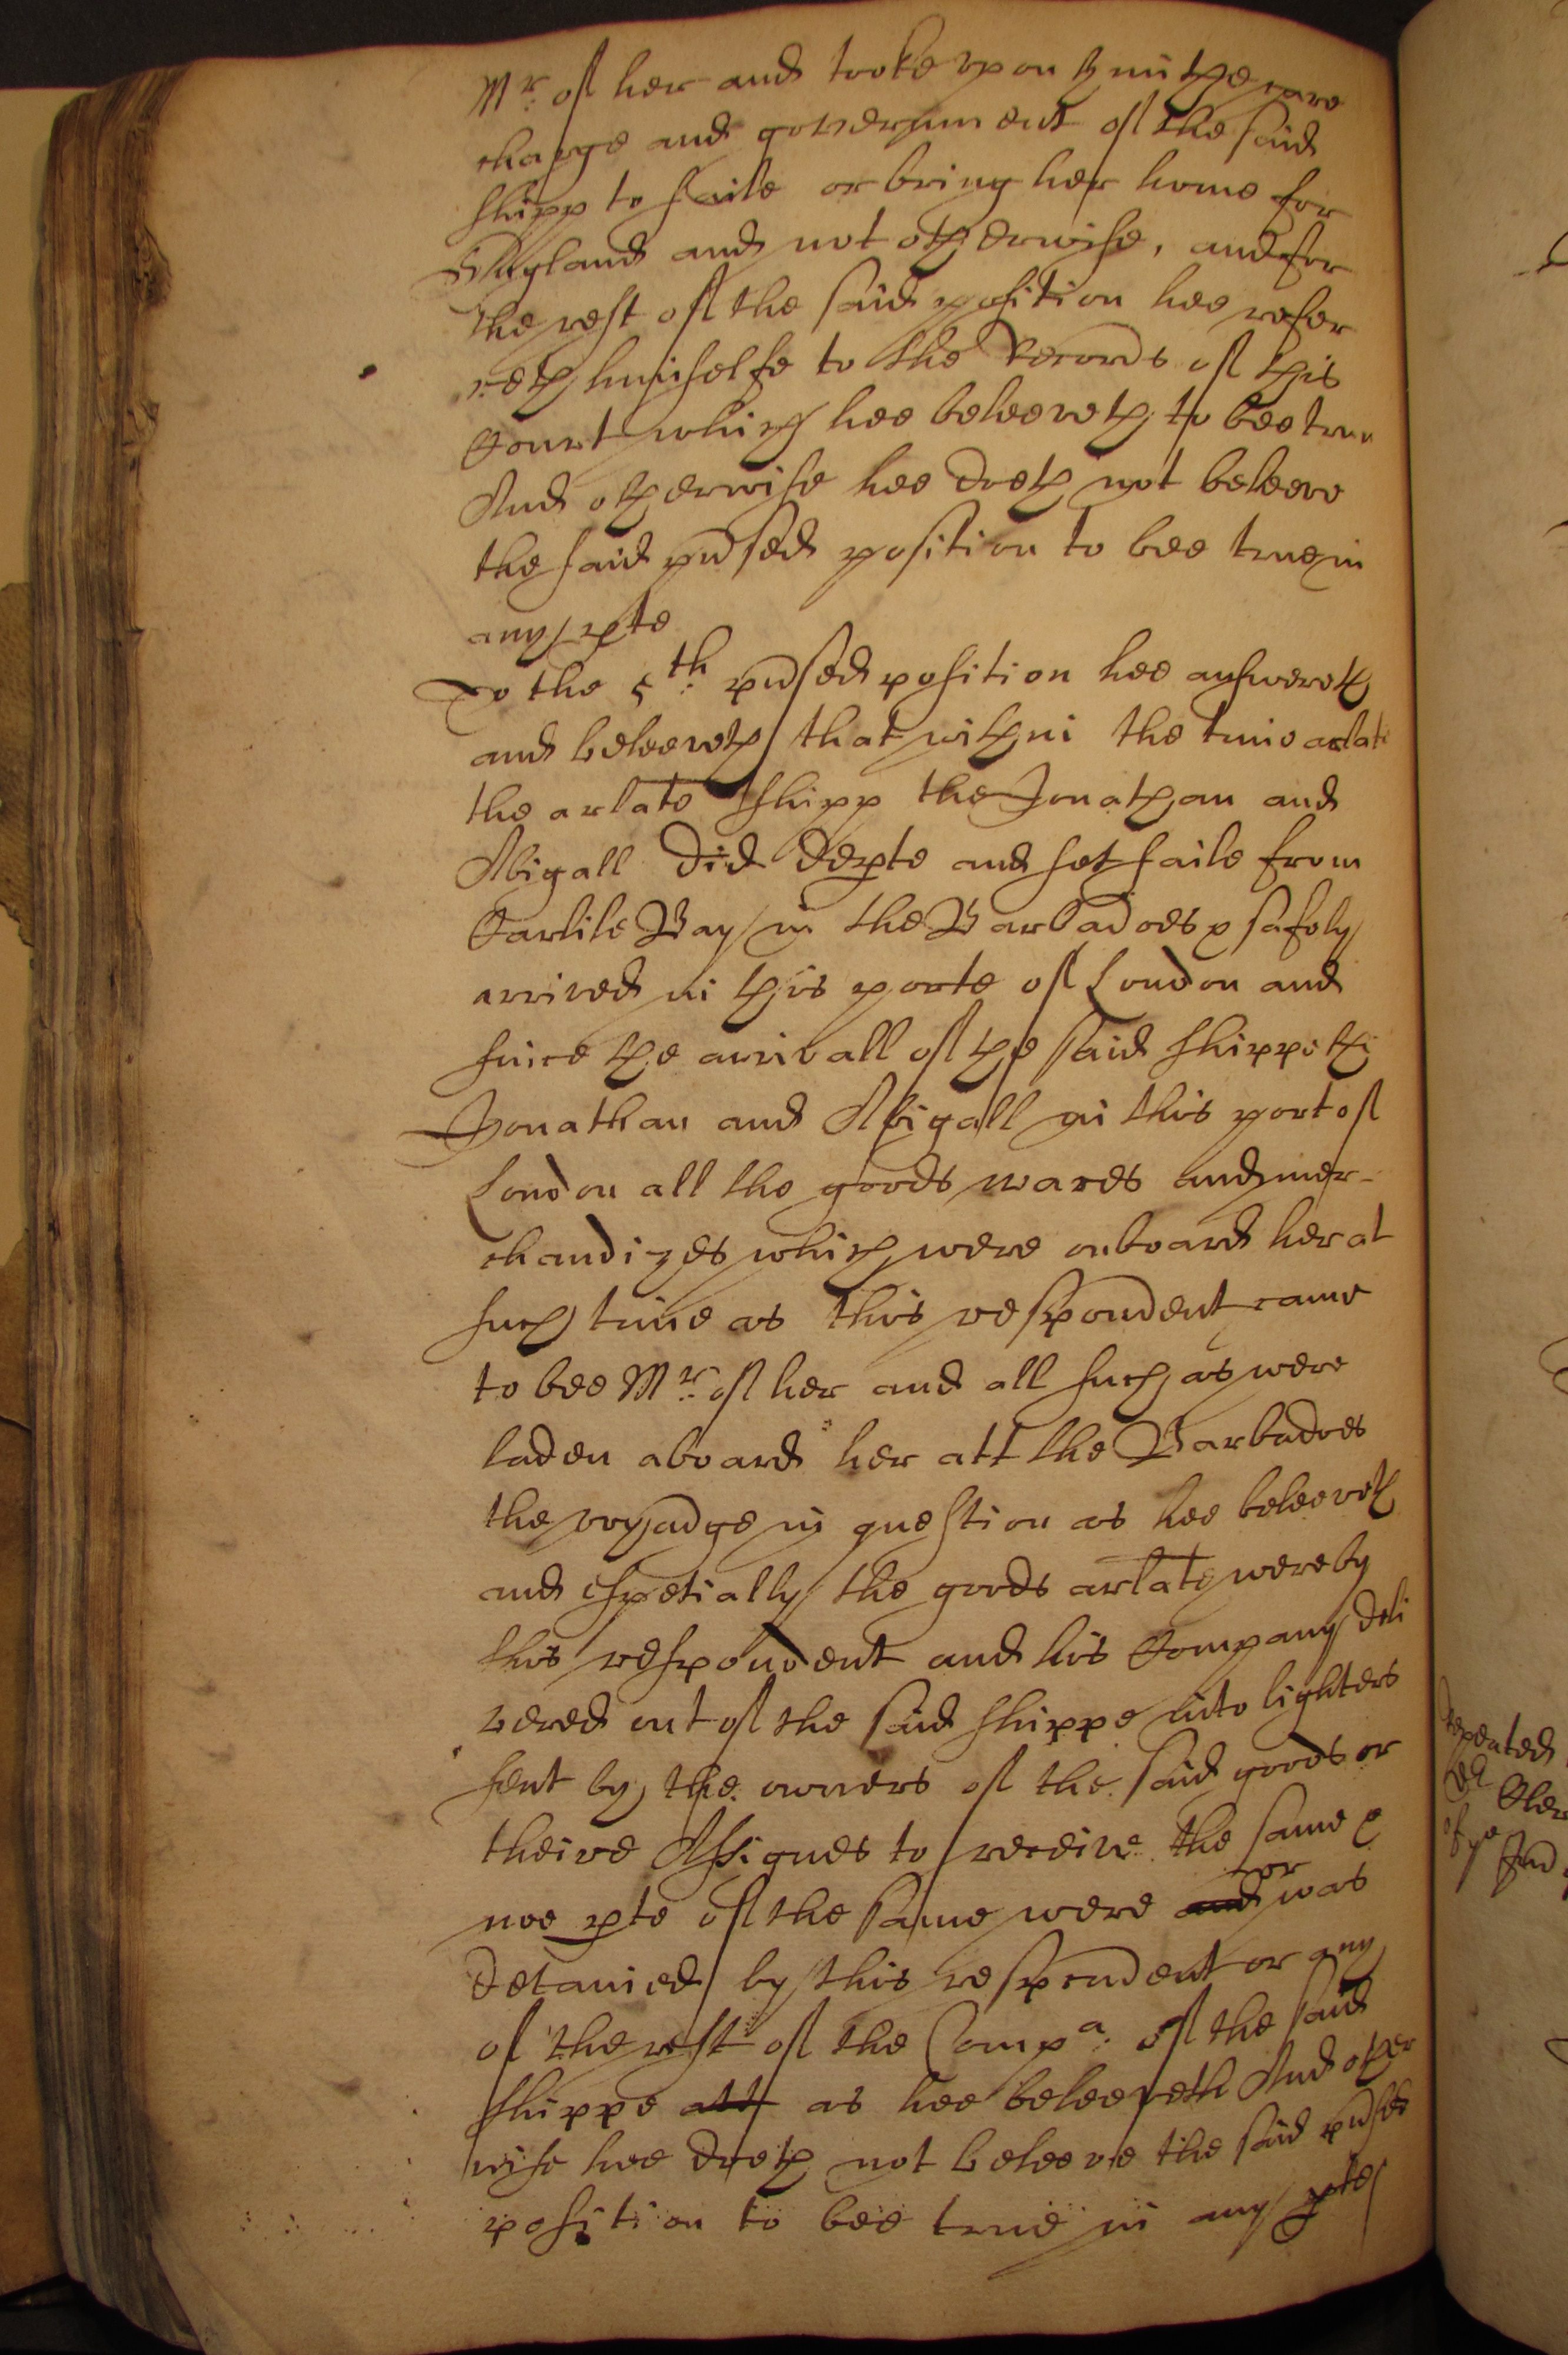 Mr: of her and tooke upon him the care
charge and government of the said
shipp to saile or bring her home for
England and not otherwise, and for
the rest of the said position hee refer
reth himselfe to the Records of this
Court which hee beleeveth to bee true
And otherwise hee doeth not beleeve
the said pnsed position to bee true in
any pte
To the 5th: pnsed position hee answereth
and beleeveth that within the time arlate
the arlate shipp the Jonathan and
Abigall did depte and set saile from
Carlile Bay in the Barbadoes & safely
arrived in this porte of London and
since the arrivall of the said shippe the
Jonathan and Abigall in this port of
London all the goods wares and mer-
chandizes which were on board her at
such time as this respondent came
to bee Mr: of her and all such as were
laden aboard her att the Barbadoes
the voyadge in question as hee beleeveth
and espetially the goods arlate were by
this respondent and his Company deli
vered out of the said shippe into lighters
sent by the owners of the said goods or
theire Assignes to receive the same &
noe pte of the same were and or was
detained by this respondent or any
of the rest of the Compa: of the said
shippe att as hee beleeveth And other
wise hee doeth not beleeve the said pnsed
position to bee true in any pte
repeated